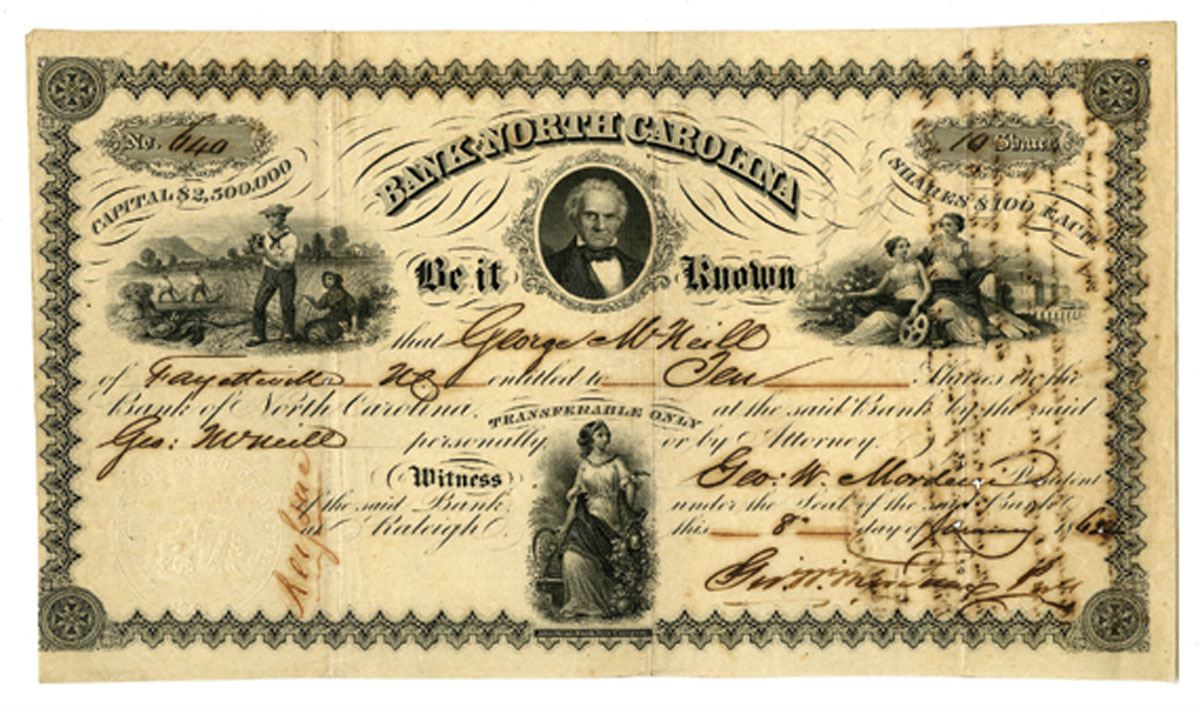 No. 640
10 Shares
CAPITAL $2,500,000
BANK NORTH CAROLINA
SHARES $100 EACH
Be it Known
that George McNeill
of Fayetteville NC entitled to Ten Shares in the
Bank of North Carolina, TRANSFERABLE ONLY at the said Bank by the said
Geo: McNeill personally or by Attorney.
Witness Geo: W. Mordecai President
of the said Bank under the Seal of the said Bank
at Raleigh this 8 day of 186
Geo: W. Mordecai